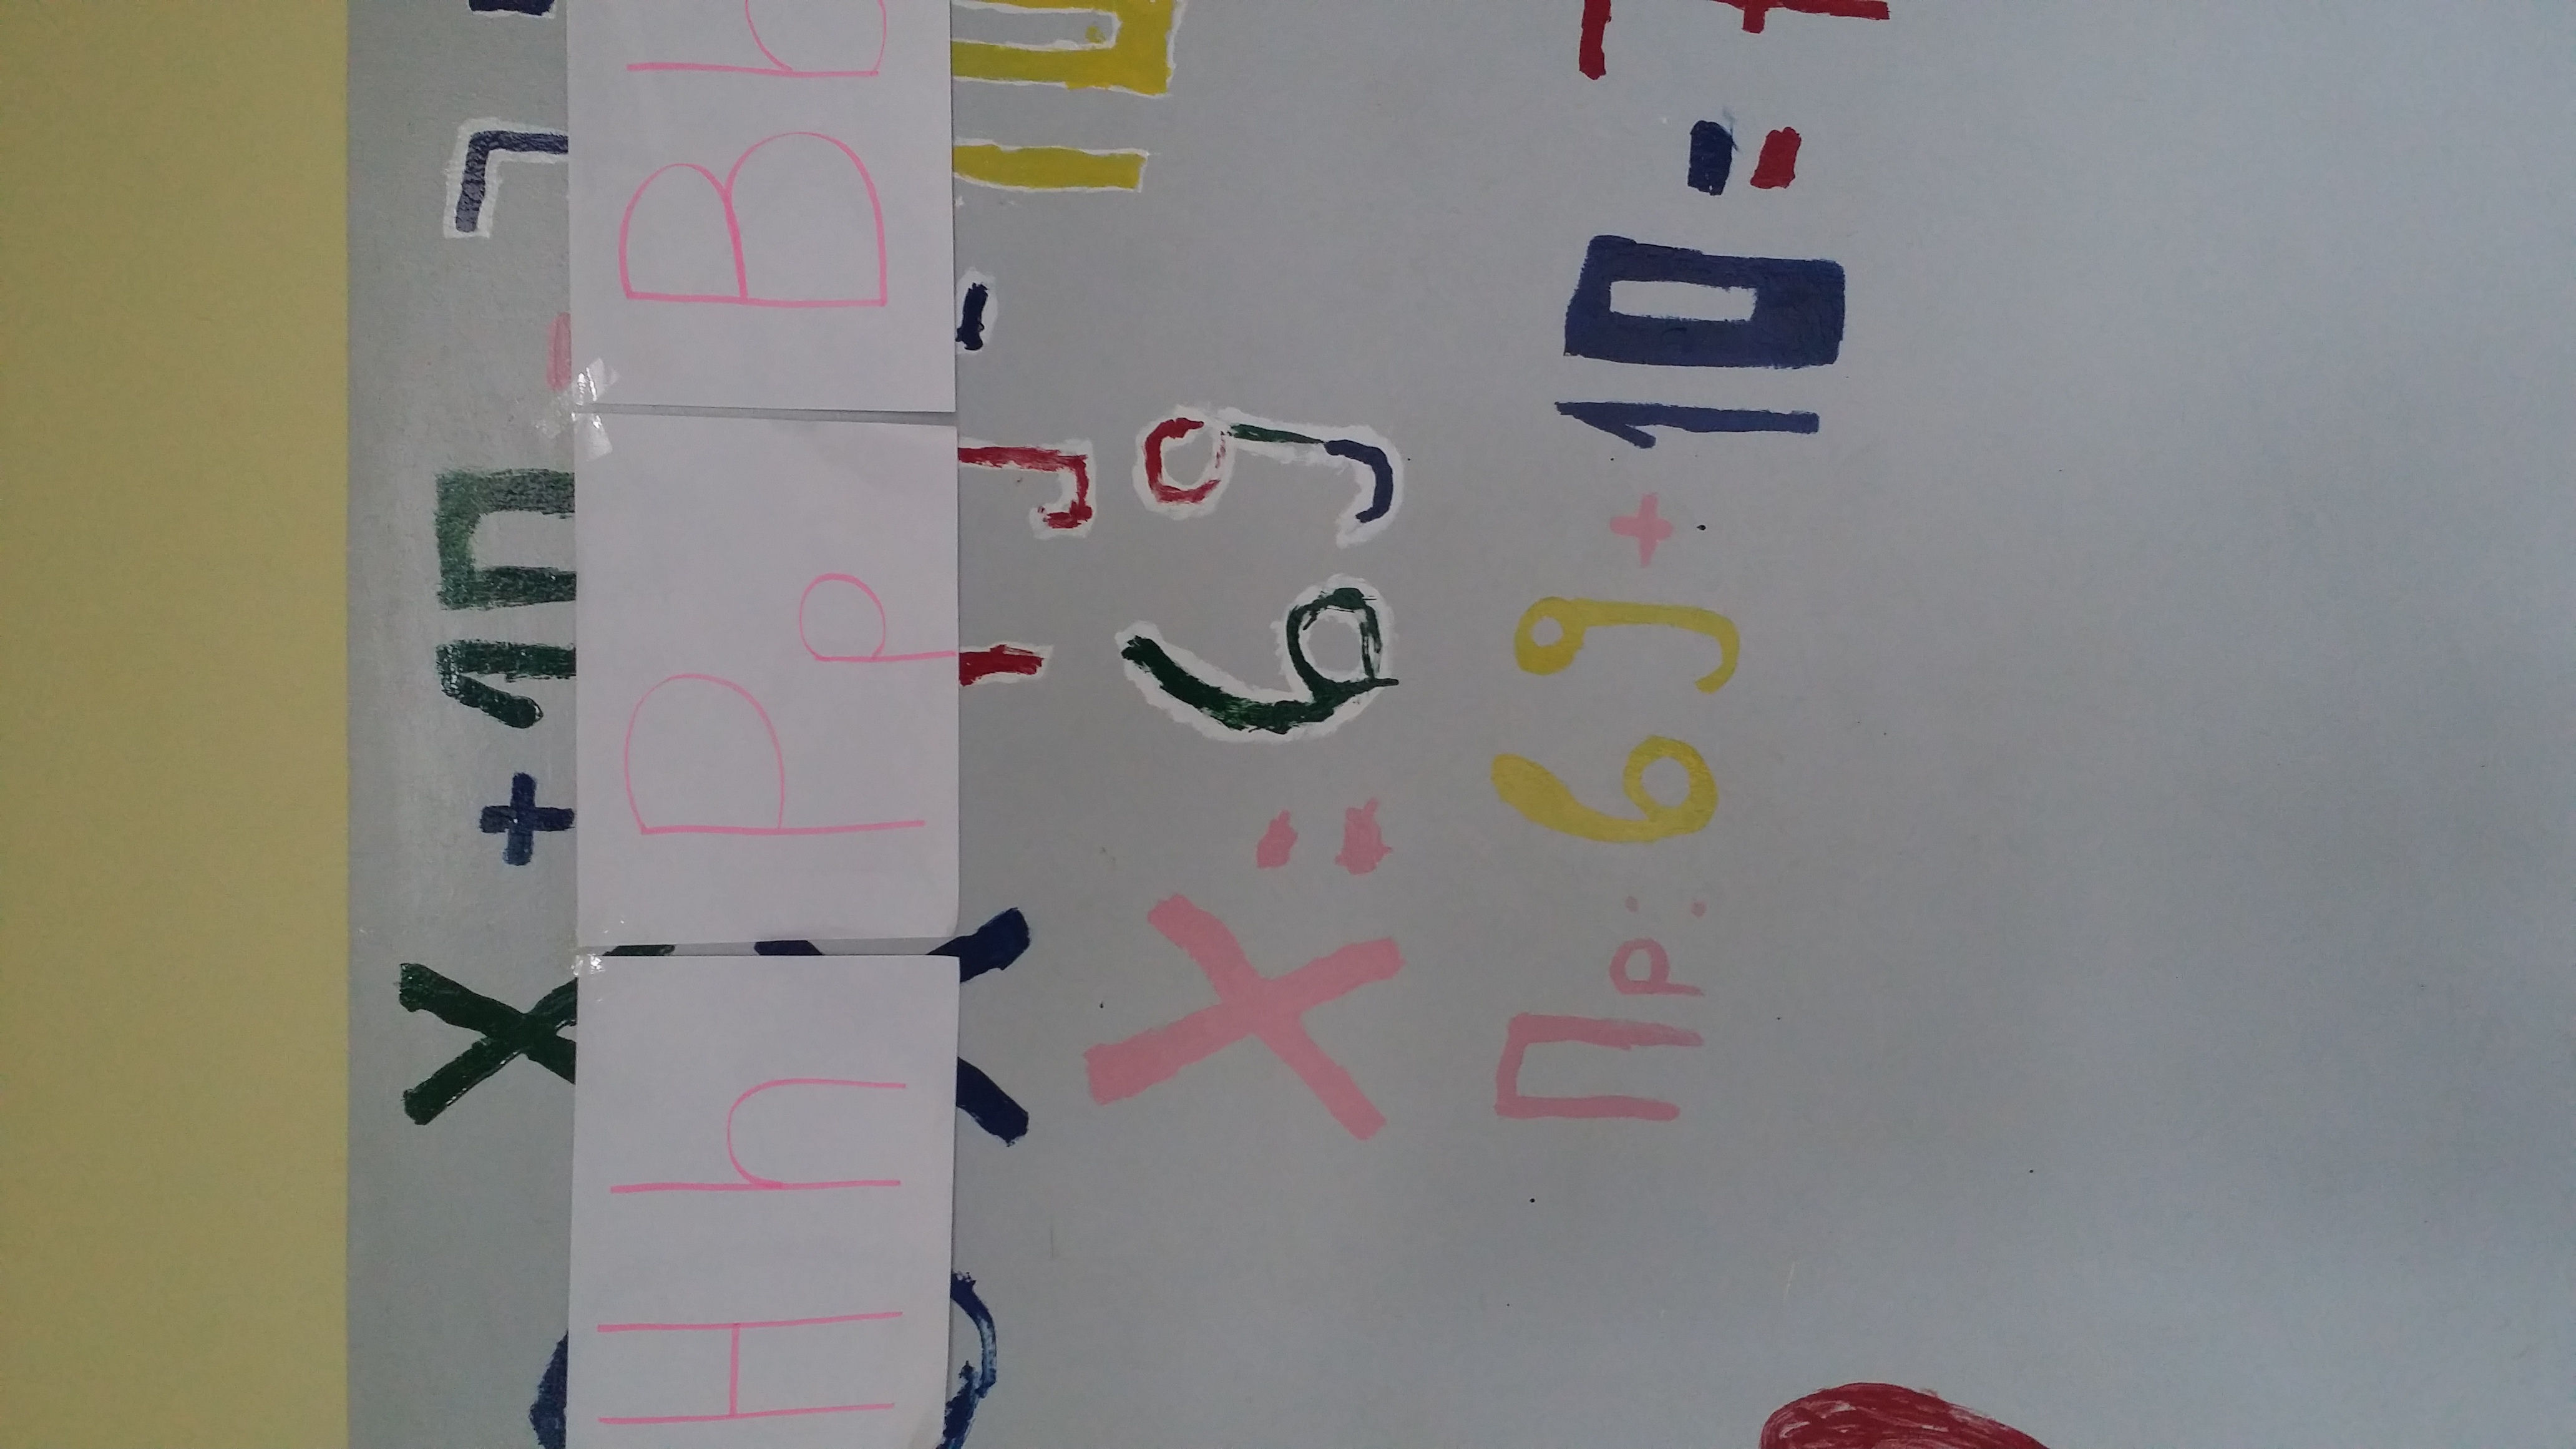 X + 10 = 7
H h P p B b
9 - 10
X = 69
Пр: 69 + 10 = 7